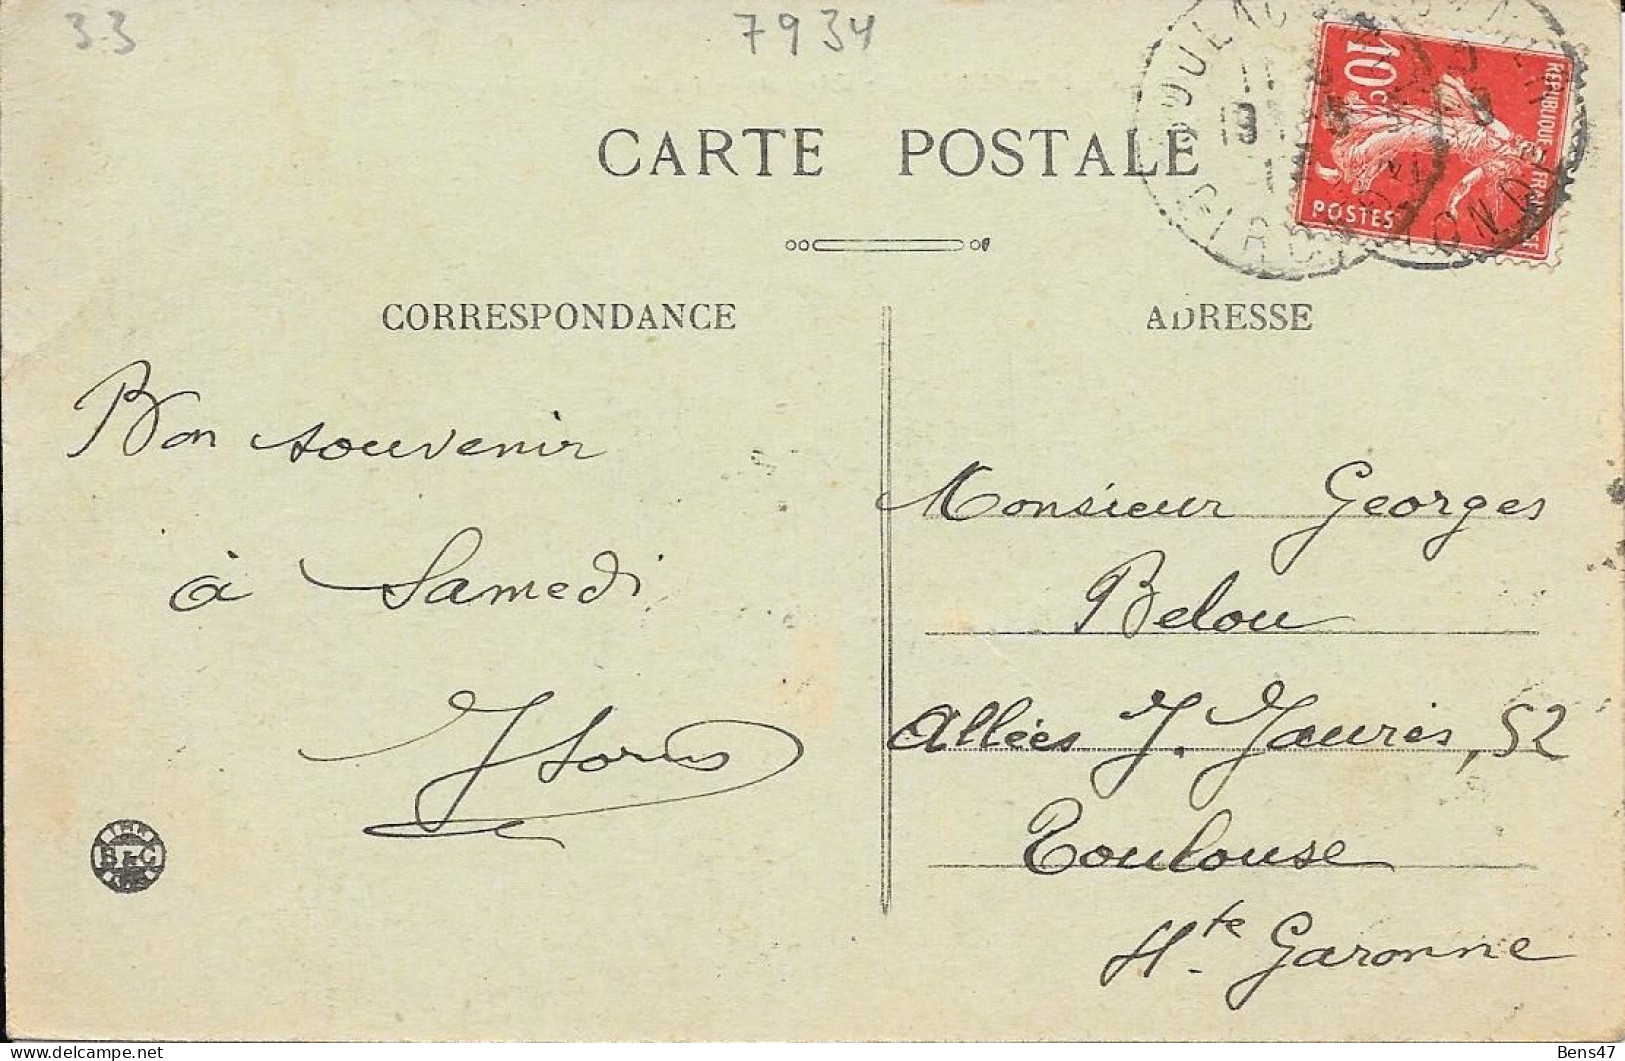 33
7934
CARTE POSTALE
10c
REPUBLIQUE FRANÇAISE
POSTES
GIRONDE
CORRESPONDANCE
ADRESSE
Bon souvenir
à Samedi
B & C
Monsieur Georges
Belou
Allées J. Jaurès, 52
Toulouse
Hte Garonne
Bens47